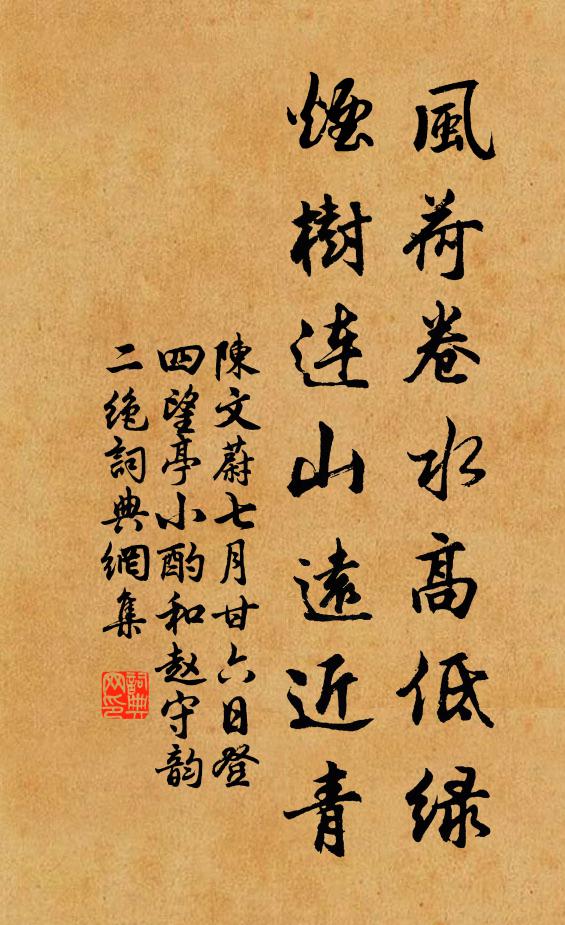 風荷卷水高低緑
煙樹连山遠近青
陳文蔚七月廿六日登
四望亭小酌和赵守韵
二绝詞典網集
詞典
网印